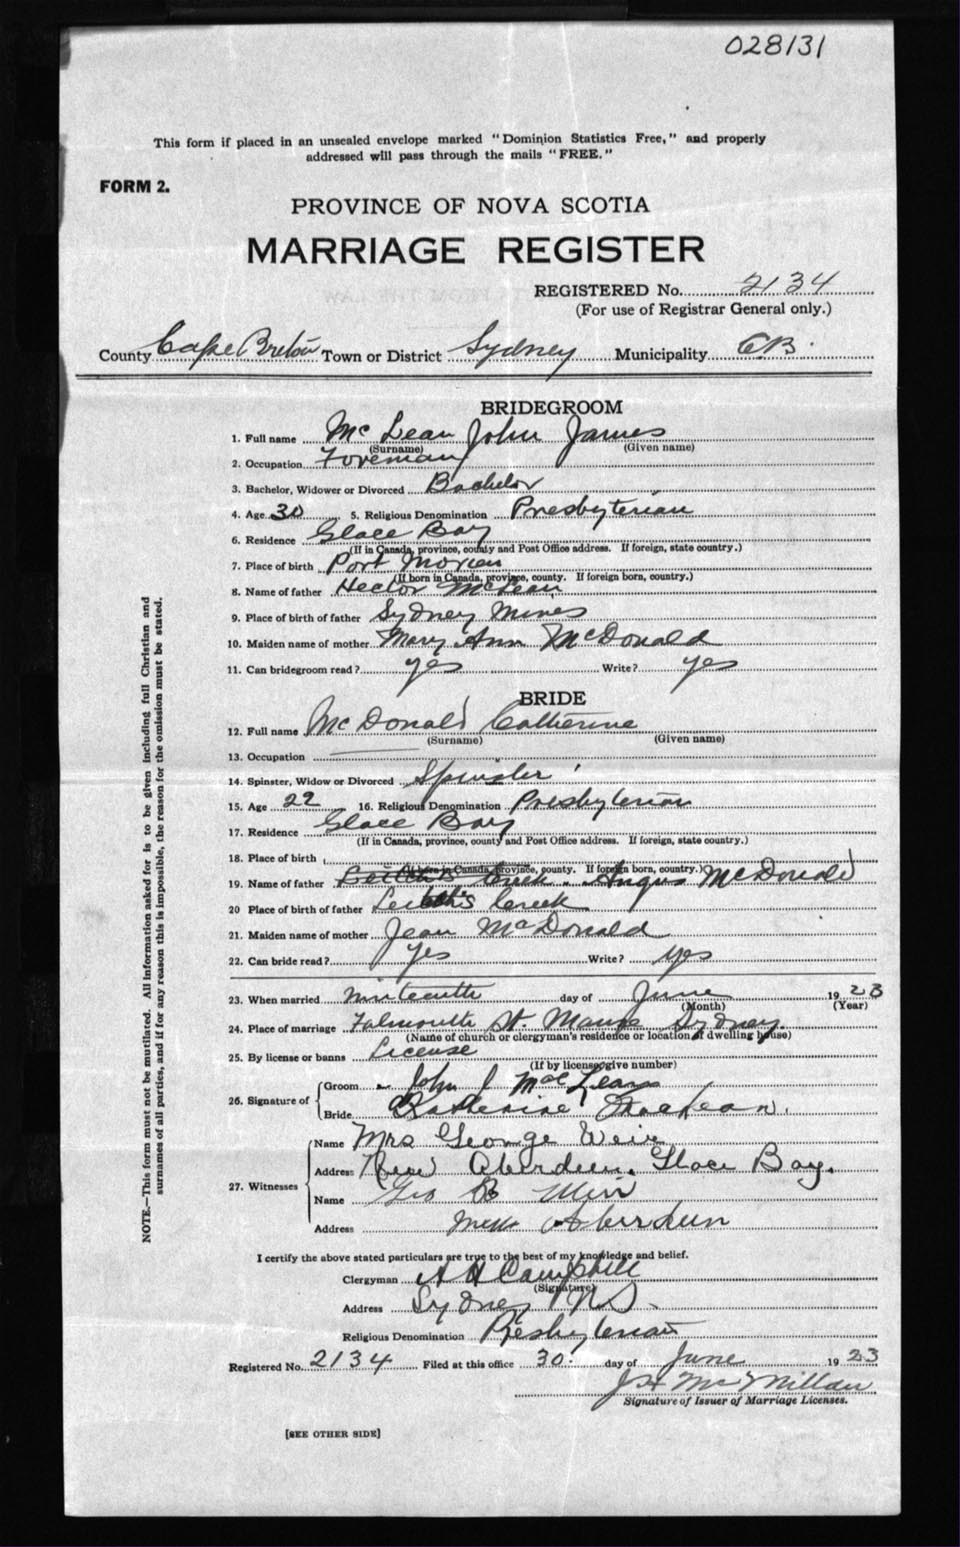 028131
This form if placed in an unsealed envelope marked "Dominion Statistics Free," and properly
addressed will pass through the mails "FREE."
FORM 2.
PROVINCE OF NOVA SCOTIA
MARRIAGE REGISTER
REGISTERED No. 2134
(For use of Registrar General only.)
County Cape Breton Town or District Sydney Municipality C.B.
BRIDEGROOM
1. Full name Mc Lean John James
(Surname) (Given name)
2. Occupation Foreman
3. Bachelor, Widower or Divorced Bachelor
4. Age 30 5. Religious Denomination Presbyterian
6. Residence Glace Bay
(If in Canada, province, county and Post Office address. If foreign, state country.)
7. Place of birth Port Morien
(If born in Canada, province, county. If foreign born, country.)
8. Name of father Hector McLean
9. Place of birth of father Sydney Mines
10. Maiden name of mother Mary Ann McDonald
11. Can bridegroom read? yes Write? yes
BRIDE
12. Full name McDonald Catherine
(Surname) (Given name)
13. Occupation
14. Spinster, Widow or Divorced Spinster
15. Age 22 16. Religious Denomination Presbyterian
17. Residence Glace Bay
(If in Canada, province, county and Post Office address. If foreign, state country.)
18. Place of birth
(If born in Canada, province, county. If foreign born, country.)
19. Name of father Angus McDonald
20 Place of birth of father Leitch's Creek
21. Maiden name of mother Jean McDonald
22. Can bride read? Yes Write? yes
23. When married ninteenth day of June 1923
(Month) (Year)
24. Place of marriage Falmouth St. Manse Sydney
(Name of church or clergyman's residence or location of dwelling house)
25. By license or banns License
(If by license, give number)
26. Signature of
Groom John J MacLean
Bride Katherine MacLean.
27. Witnesses
Name Mrs George Weir
Address New Aberdeen. Glace Bay.
Name Geo B Weir
Address New Aberdeen
I certify the above stated particulars are true to the best of my knowledge and belief.
Clergyman A H Campbell
(Signature)
Address Sydney N.S.
Religious Denomination Presbyterian
Registered No. 2134 Filed at this office 30. day of June 1923
J H McMillan
Signature of Issuer of Marriage Licenses.
[SEE OTHER SIDE]
NOTE.—This form must not be mutilated. All information asked for is to be given including full Christian and
surnames of all parties, and if for any reason this is impossible, the reason for the omission must be stated.